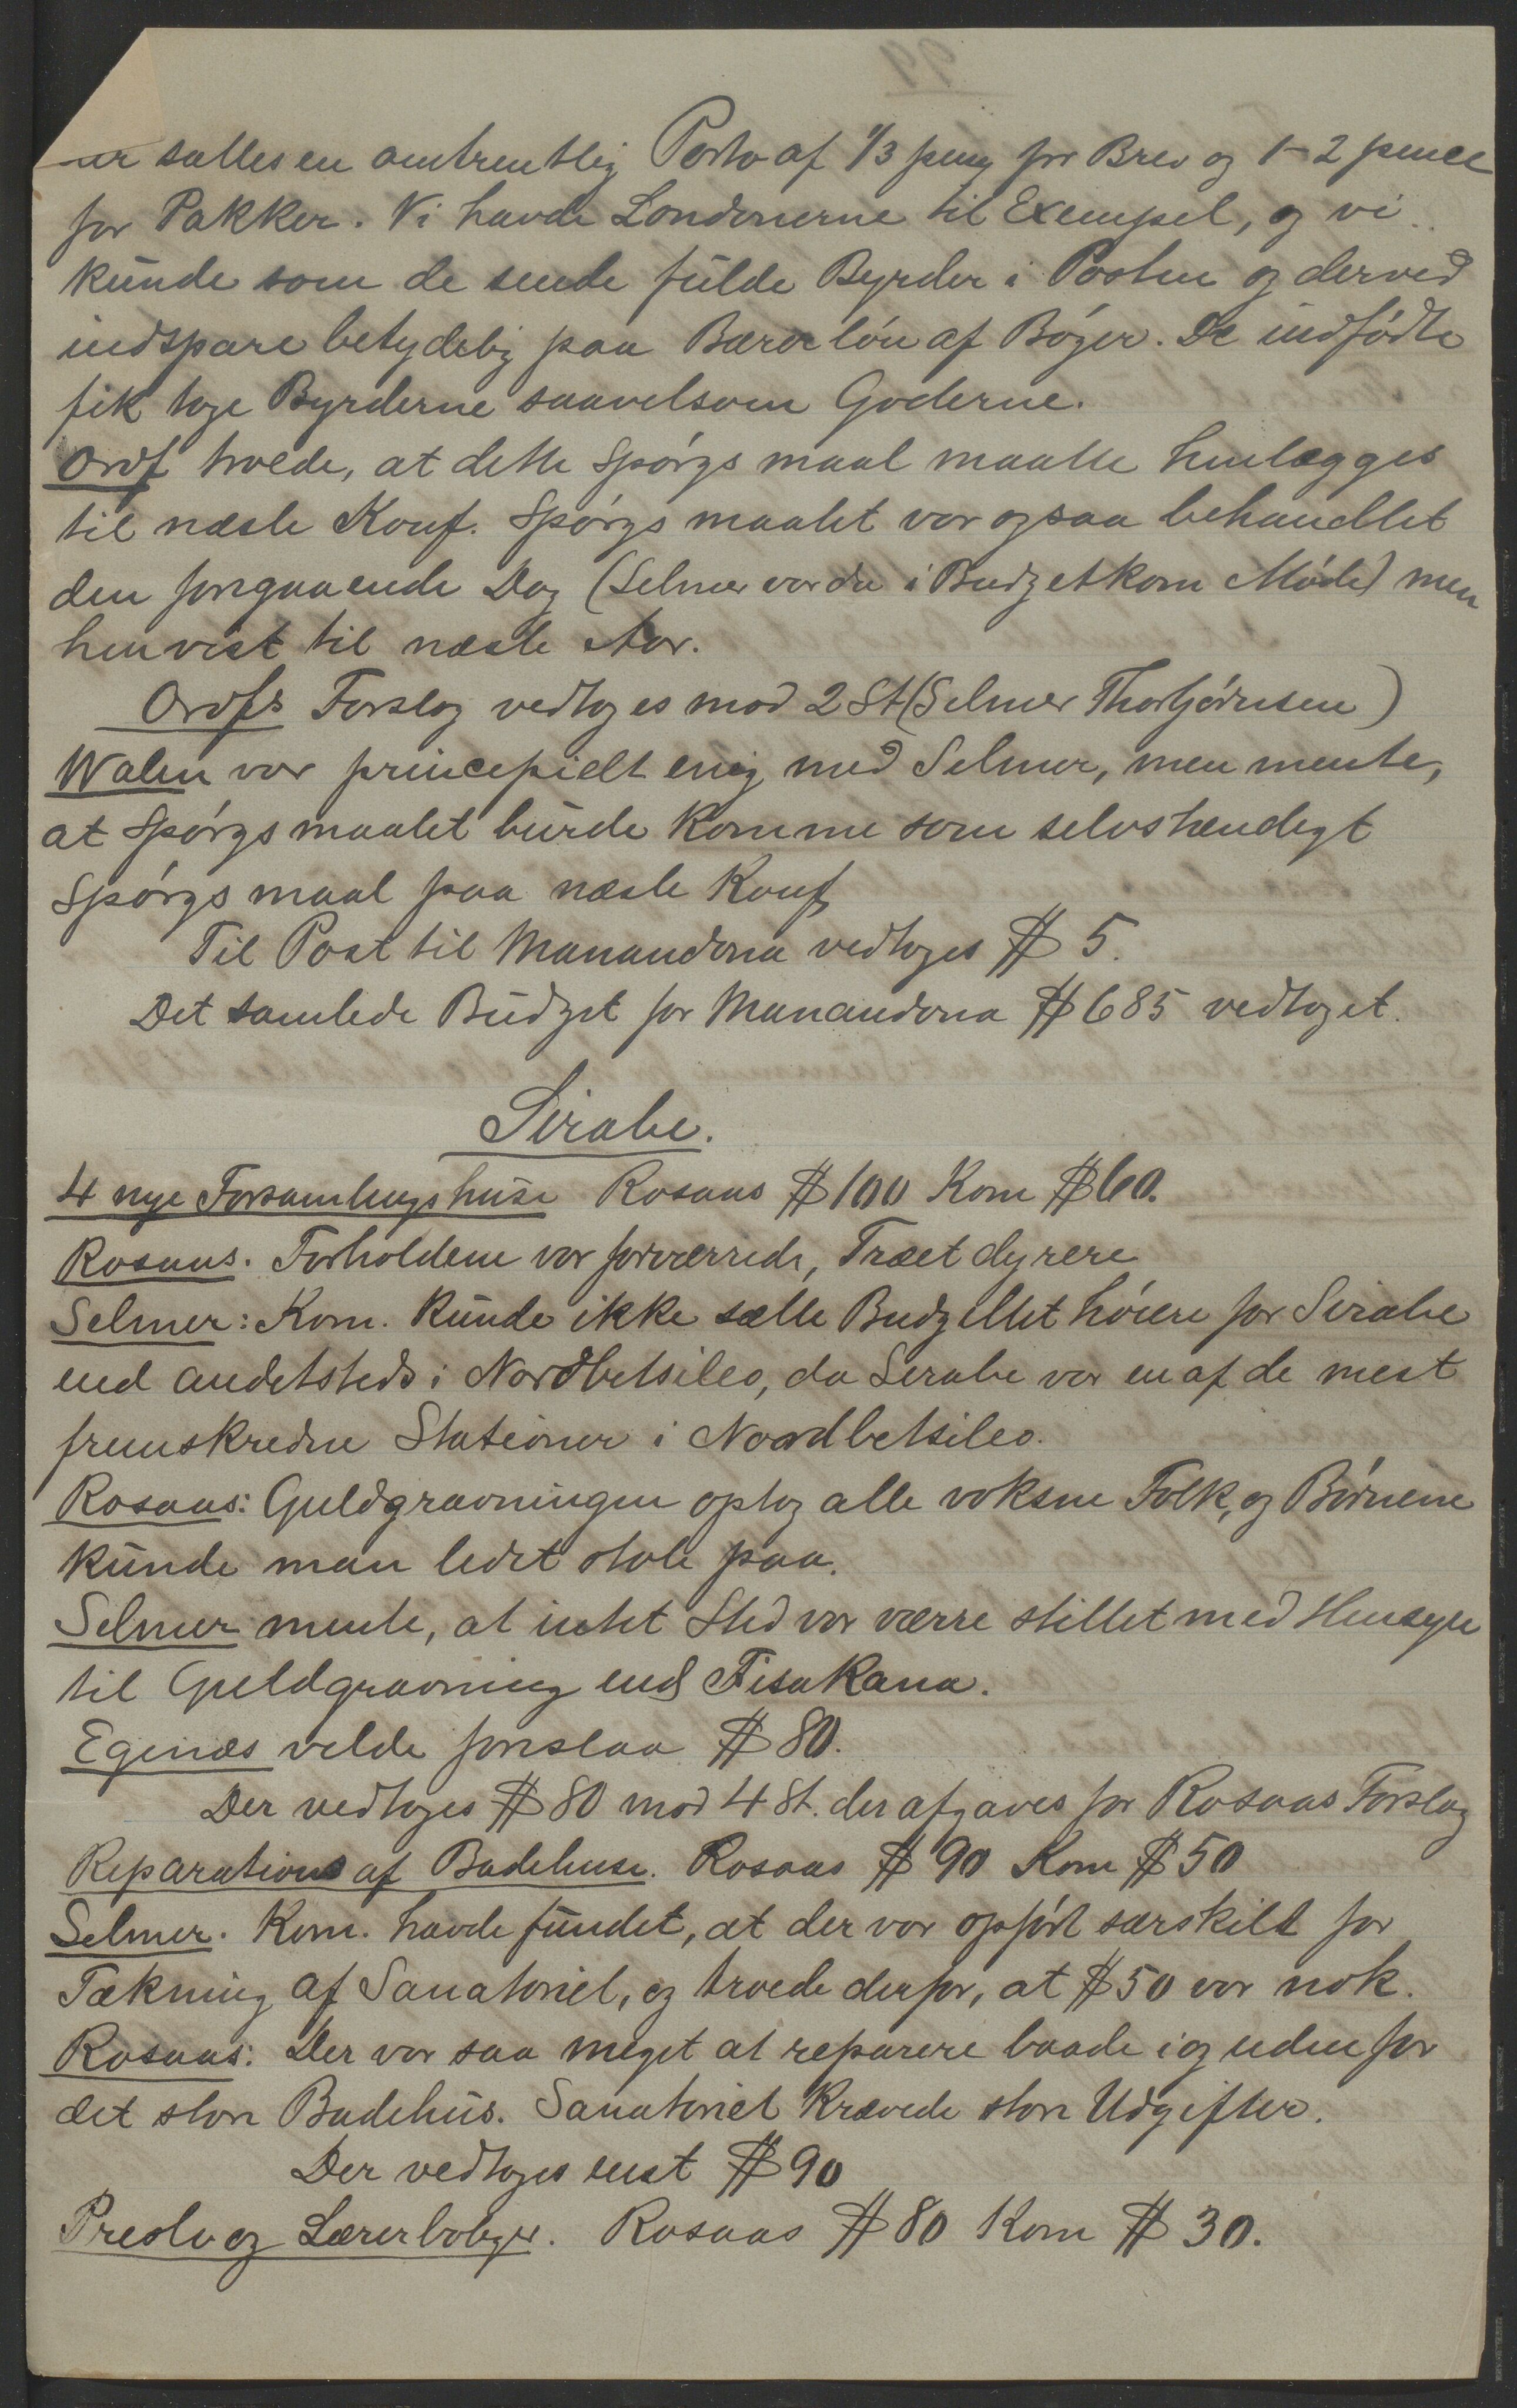 sættes en omtrentlig Porto af 1/3 peny pr Brev og 1-2 pence
for Pakker. Vi havde Londonerne til Exempel, og vi
kunde som de sende fulde Byrder i Posten og derved
indspare betydelig paa Bærerløn af Bøger. De indfødte
fik tage Byrderne saavelsom Goderne.
Ordf troede, at dette Spørgsmaal maatte henlægges
til næste Konf. Spørgsmaalet var ogsaa behandlet
den foregaaende Dag (Selmer var da i Budgetkom Møde) men
henvist til næste Aar.
Ordfs Forslag vedtoges mod 2 St (Selmer Thorbjørnsen)
Walen var principielt enig med Selmer, men mente,
at Spørgsmaalet burde komme som selvstændigt
Spørgsmaal paa næste Konf
Til Post til Manandona vedtoges $ 5.
Det samlede Budget for Manandona $ 685 vedtaget.
Sirabe.
4 nye Forsamlingshuse Rosaas $ 100 Kom $ 60.
Rosaas. Forholdene var forværrede, Træet dyrere
Selmer: Kom. kunde ikke sætte Budgettet høiere for Sirabe
end andetsteds i Nordbetsileo, da Sirabe var en af de mest
fremskredne Stationer i Nordbetsileo.
Rosaas: Guldgravningen optog alle voksne Folk, og Børnene
kunde man lidet stole paa.
Selmer mente, at intet Sted var værre stillet med Hensyn
til Guldgravning end Fisakana.
Egenæs vilde foreslaa $ 80.
Der vedtoges $ 80 mod 4 St. der afgaves for Rosaas Forslag
Reparations af Badehuse. Rosaas $ 90 Kom $ 50
Selmer. Kom. havde fundet, at der var opført særskilt for
Tækning af Sanatoriet, og troede derfor, at $ 50 var nok.
Rosaas: Der var saa meget at reparere baade i og udenfor
det store Badehus. Sanatoriet krævede store Udgifter.
Der vedtoges enst $ 90
Prest og Lærerboliger. Rosaas $ 80 Kom $ 30.